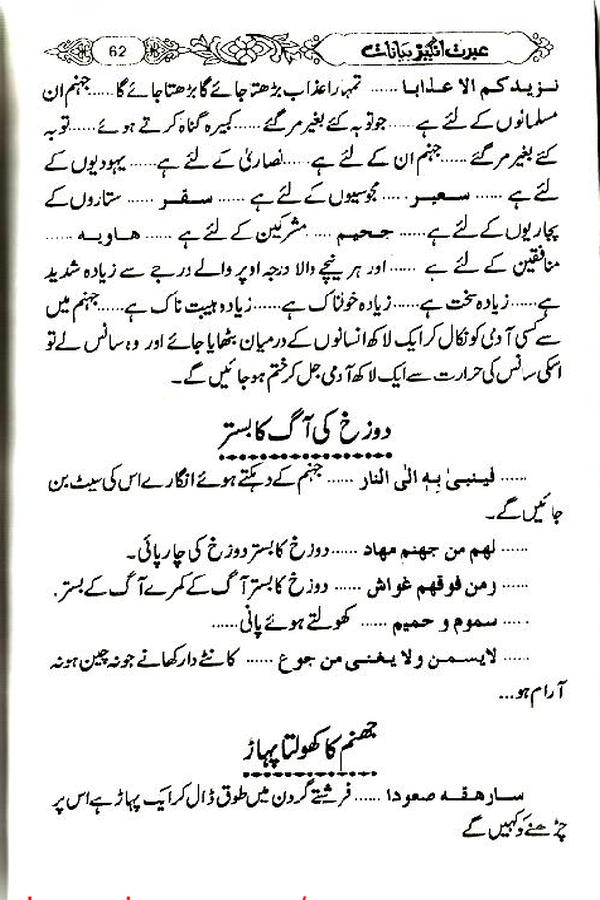 عبرت انگیز بیانات
62
نزیدکم الا عذابا ...... تمہارا عذاب بڑھتا جائے گا بڑھتا جائے گا ...... جہنم ان
مسلمانوں کے لئے ہے ...... جو توبہ کے بغیر مرگئے ...... کبیرہ گناہ کرتے ہوئے ...... توبہ
کئے بغیر مرگئے ...... جہنم ان کے لئے ہے ...... نصاریٰ کے لئے ہے ...... یہودیوں کے
لئے ہے ...... سعیر ...... مجوسیوں کے لئے ہے ...... سقر ...... ستاروں کے
پجاریوں کے لئے ہے ...... جحیم .... مشرکین کے لئے ہے ...... ھاویہ ......
منافقین کے لئے ہے ...... اور ہر نیچے والا درجہ اوپر والے درجے سے زیادہ شدید
ہے ...... زیادہ سخت ہے ...... زیادہ خوفناک ہے ...... زیادہ ہیبت ناک ہے ...... جہنم میں
سے کسی آدمی کو نکال کر ایک لاکھ انسانوں کے درمیان بٹھایا جائے اور وہ سانس لے تو
اسکی سانس کی حرارت سے ایک لاکھ آدمی جل کر ختم ہو جائیں گے۔
دوزخ کی آگ کا بستر
...... فینبیٰ بہ الی النار ...... جہنم کے دہکتے ہوئے انگارے اس کی سیٹ بن
جائیں گے۔
...... لھم من جھنم مھاد ...... دوزخ کا بستر دوزخ کی چارپائی۔
...... ومن فوقھم غواش ...... دوزخ کا بستر آگ کے کمرے آگ کے بستر.
...... سموم و حمیم ...... کھولتے ہوئے پانی ......
...... لایسمن ولا یغنی من جوع ...... کانٹے دار کھانے جو نہ چین ہو نہ
آرام ہو...
جہنم کا کھولتا پہاڑ
سارھقہ صعودا ...... فرشتے گردن میں طوق ڈال کر ایک پہاڑ ہے اس پر
چڑھنے کو کہیں گے